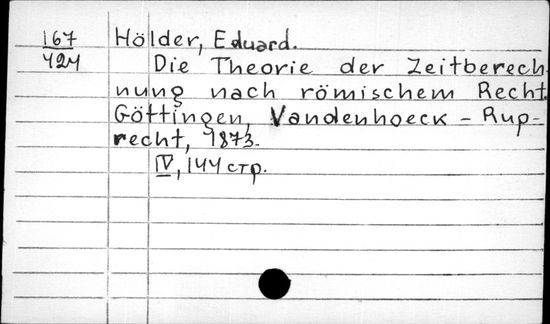 167 Hölder, Eduard.
424 Die Theorie der Zeitberech
nung nach römischem Recht.
Göttingen, Vandenhoeck - Rup-
recht, 1873.
IV, 144 стр.